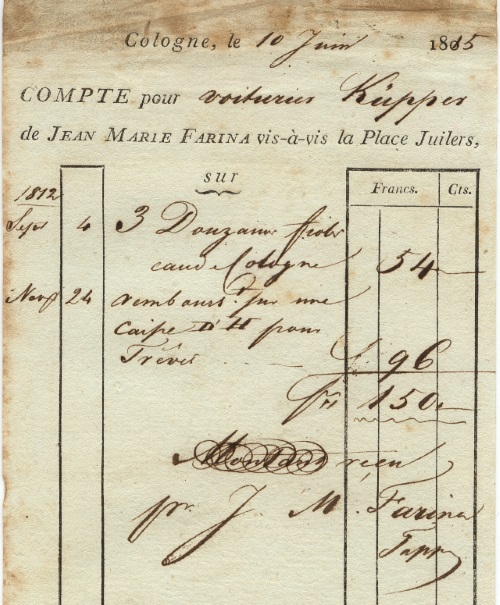 Cologne, le 10 Juin 1815
COMPTE pour voiturier Küpper
de JEAN MARIE FARINA vis-à-vis la Place Juilers,
sur
Francs. Cts.
1812
Sept 4 3 Douzaines fioles
eau de Cologne 54
24 rembours.t sur une
caise pour
Trêves f. 96
fr 150
Montant reçu
pr. J. M. Farina